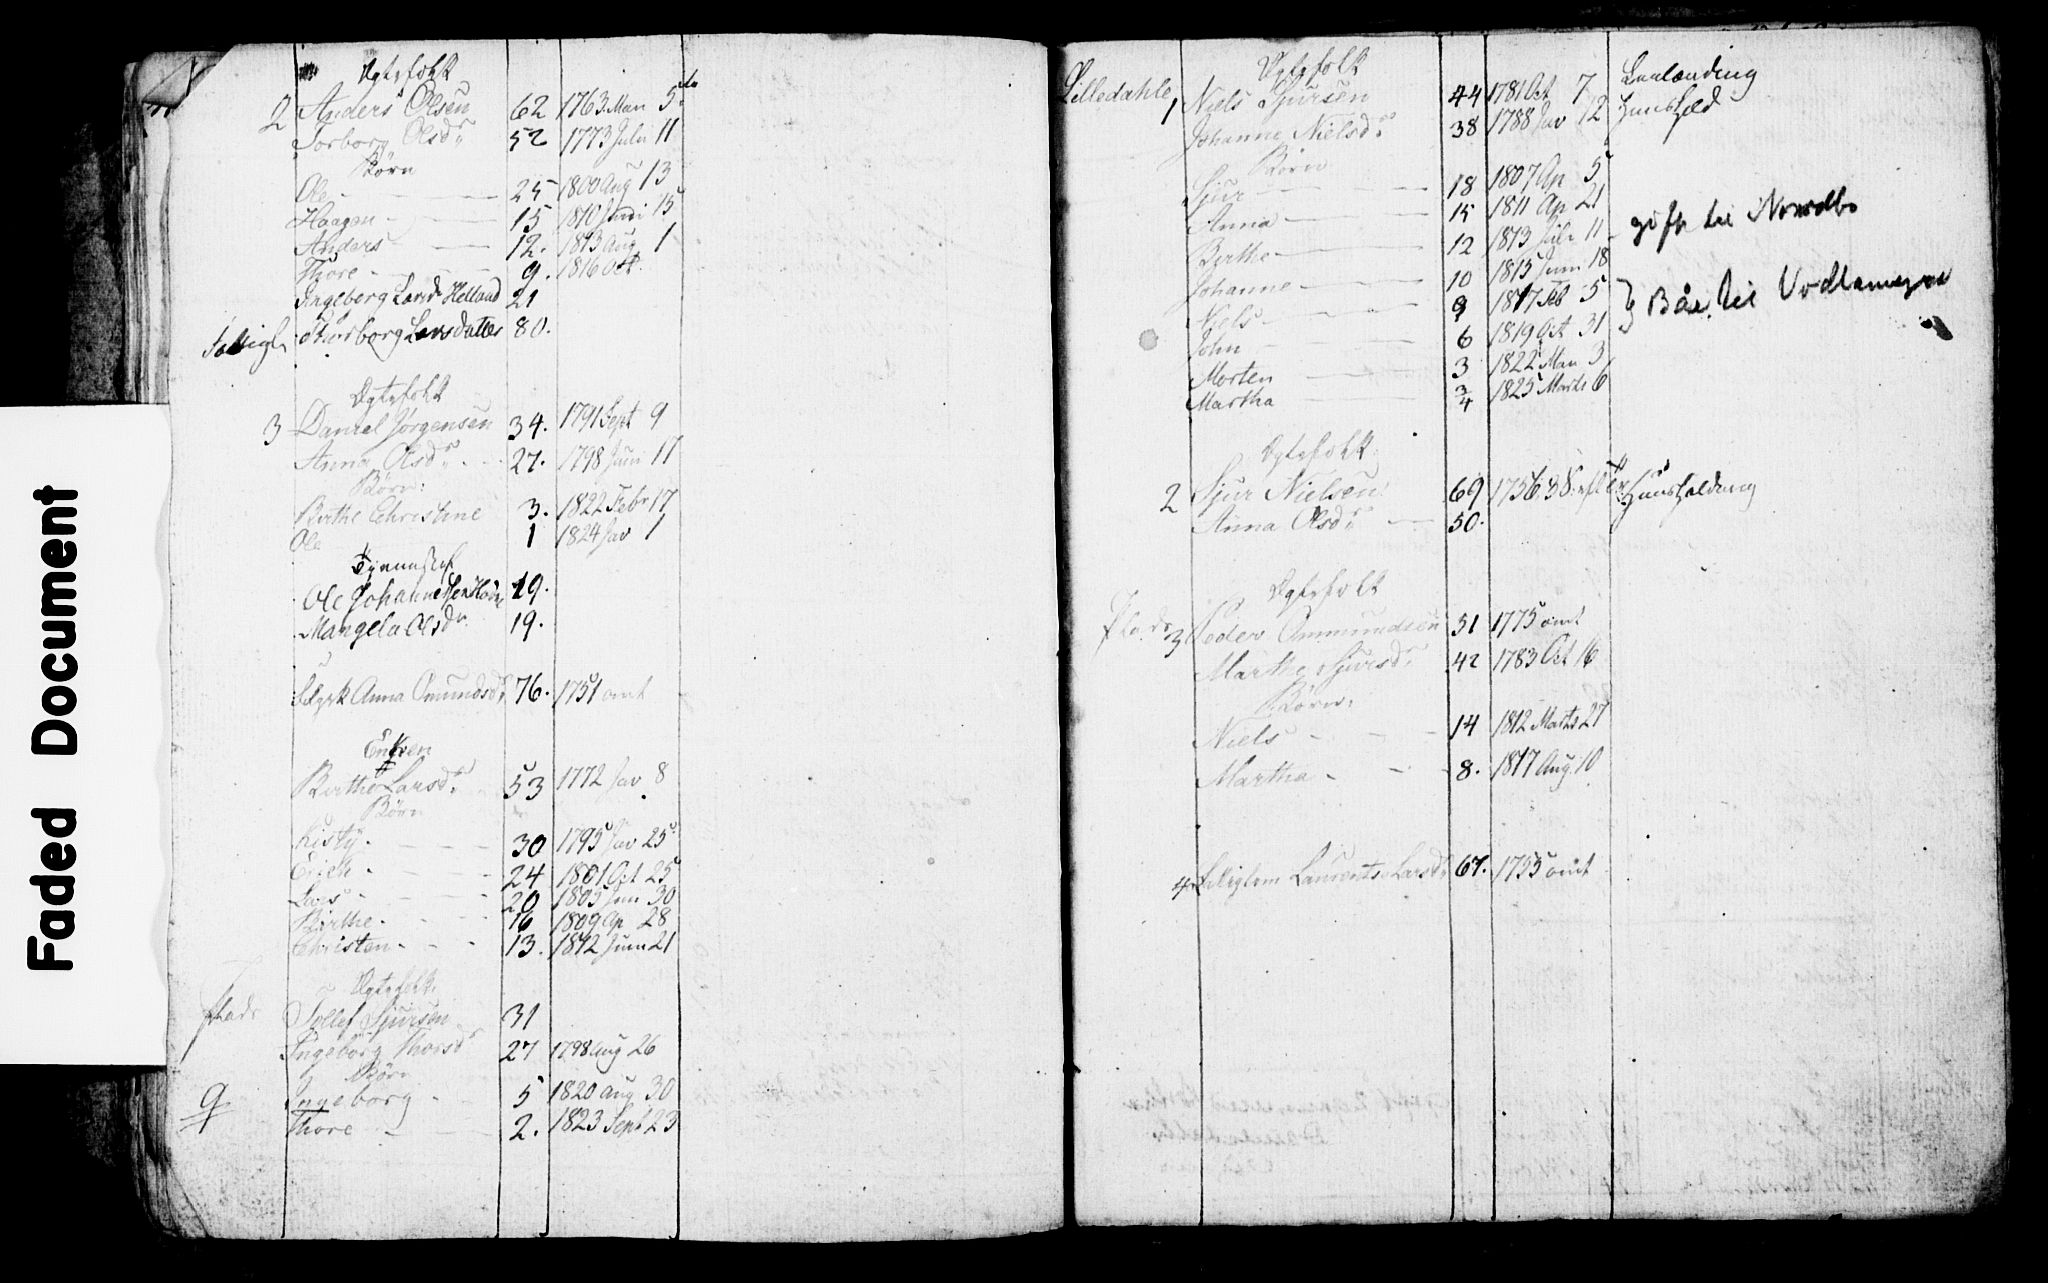 Faded Document
Egtefolk
2 Anders Olsen 62 1763 Mai 5
Torborg Olsdr 52 1773 Julii 11
Børn
Ole 25 1800 Aug 13
Haagen 15 1810 Junii 15
Anders 12. 1813 Aug 1
Thore 9. 1816 Oct.
Ingeborg Larsdr Helland 21
Thorborg Larsdatter 80.
Egtefolk
3 Daniel Jørgensen 34. 1791 Sept 9
Anna Olsdr 27. 1798 Juni 17
Børn:
Birthe Christine 3. 1822 Febr 17
Ole 1 1824 Jav 1
Ole Johannessen 19.
Mangela Olsdr 19.
Anna Omundsdr 76. 1751 omt
Enken
Birthe Larsdr 53 1772 Jav 8
Børn
Kisty 30 1795 Jav 25
Erich 24 1801 Oct 25
Lars 20 1805 Jun 30
Birthe 16 1809 Ap 28
Christen 13. 1812 Juni 21
Egtefolk
Plads Tollef Sjursen 31
Ingeborg Thorsdr 27 1798 Aug 26
Børn
Ingeborg 5 1820 Aug 30
9 Thore 2. 1823 Sept 23
Lilledahle
Egtefolk
1 Niels Sjursen 44 1781 Oct 7
Johanne Nielsdr 38 1788 Jav 12
Børn
Sjur 18 1807 Ap 5
Anna 15 1811 Ap 21
Birthe 12 1813 Julii 11 gift til
Johanne 10 1815 Juni 18
Niels 9 1817 Feb 5
John 6 1819 Oct 31
Morten 3 1822 Mai 3
Martha 3/4 1825 Marts 6
Egtefolk
2 Sjur Nielsen 69 1756 38
Anna Olsdr 50.
Egtefolk
Plads 3 Peder Ommundsen 51 1775 omt
Marthe Sjursdr 42 1783 Oct 16
Børn
Niels 14 1812 Marts 27
Martha 8. 1817 Aug. 10
4 Larsdr 67. 1755 omt